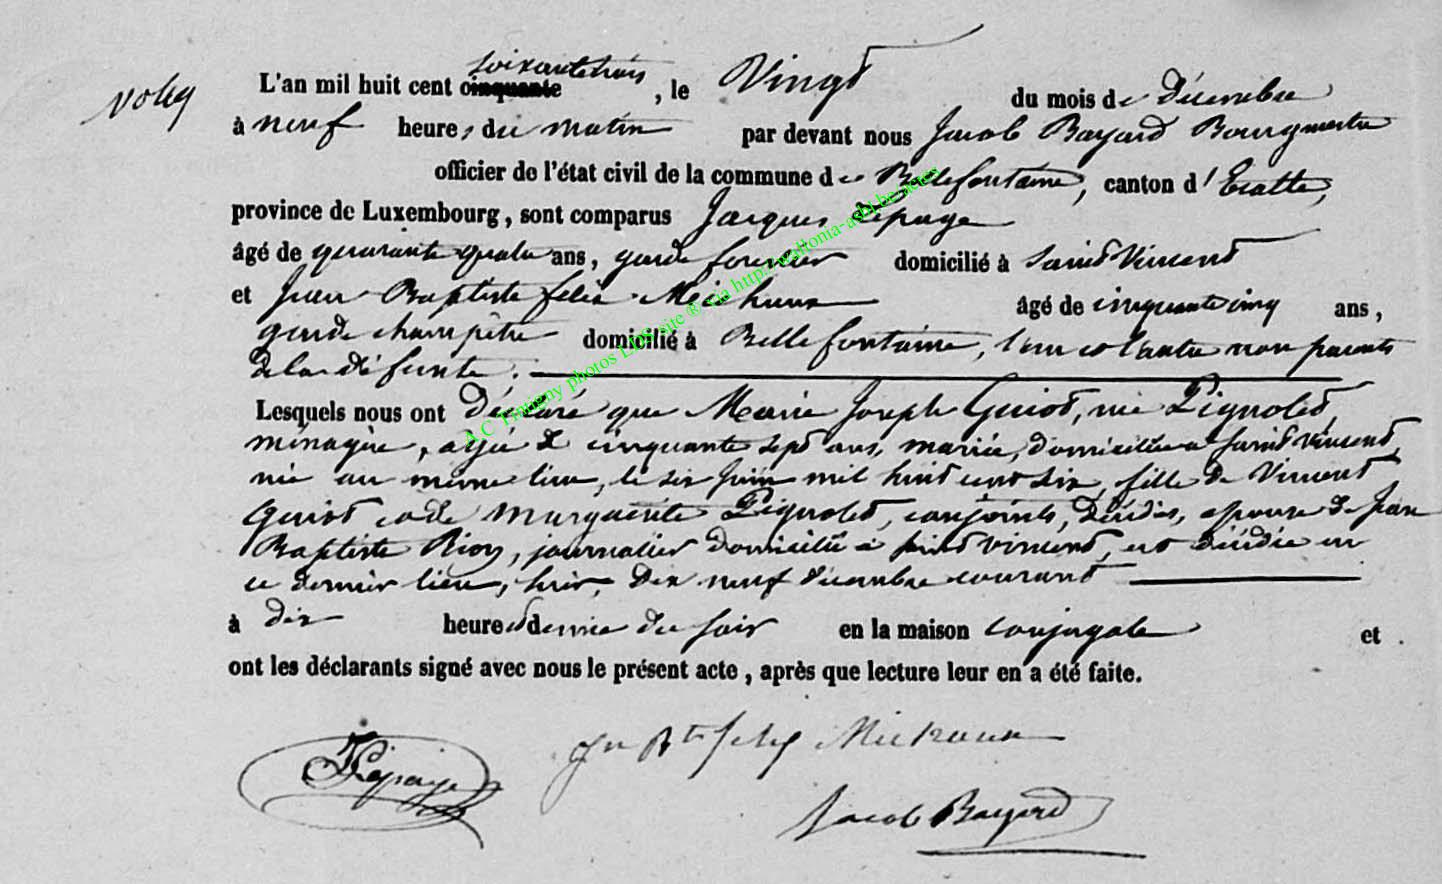 soixante trois
L'an mil huit cent cinquante , le Vingt du mois de décembre
à neuf heures du matin par devant nous Jacob Bayard Bourgmestre
officier de l'état civil de la commune de Bellefontaine, canton d'Etalle,
province de Luxembourg, sont comparus Jacques Lepage
âgé de quarante quatre ans, garde forestier domicilié à Saint Vincent
et Jean Baptiste félix Michaux âgé de cinquante cinq ans,
garde champêtre domicilié à Bellefontaine, l'un et l'autre non parents
de la défunte.
Lesquels nous ont déclaré que Marie Joseph Guiot, née Pignolet,
ménagère, agée de cinquante sept ans, mariée, domiciliée à Saint Vincent,
née au même lieu, le six Juin mil huit cent six, fille de Vincent
Guiot et de Marguerite Pignolet, conjoints, décédés, epouse de Jean
Baptiste journalier domicilié à Saint Vincent, est décédée en
ce dernier lieu, hier, dix neuf décembre courant
à dix heures et demie du soir en la maison conjugale et
ont les déclarants signé avec nous le présent acte, après que lecture leur en a été faite.
Lepage
Jn Bte felix Michaux
Jacob Bayard
A.C Tintigny photos LDS site ® via http://wallonia-asbl.be/actes